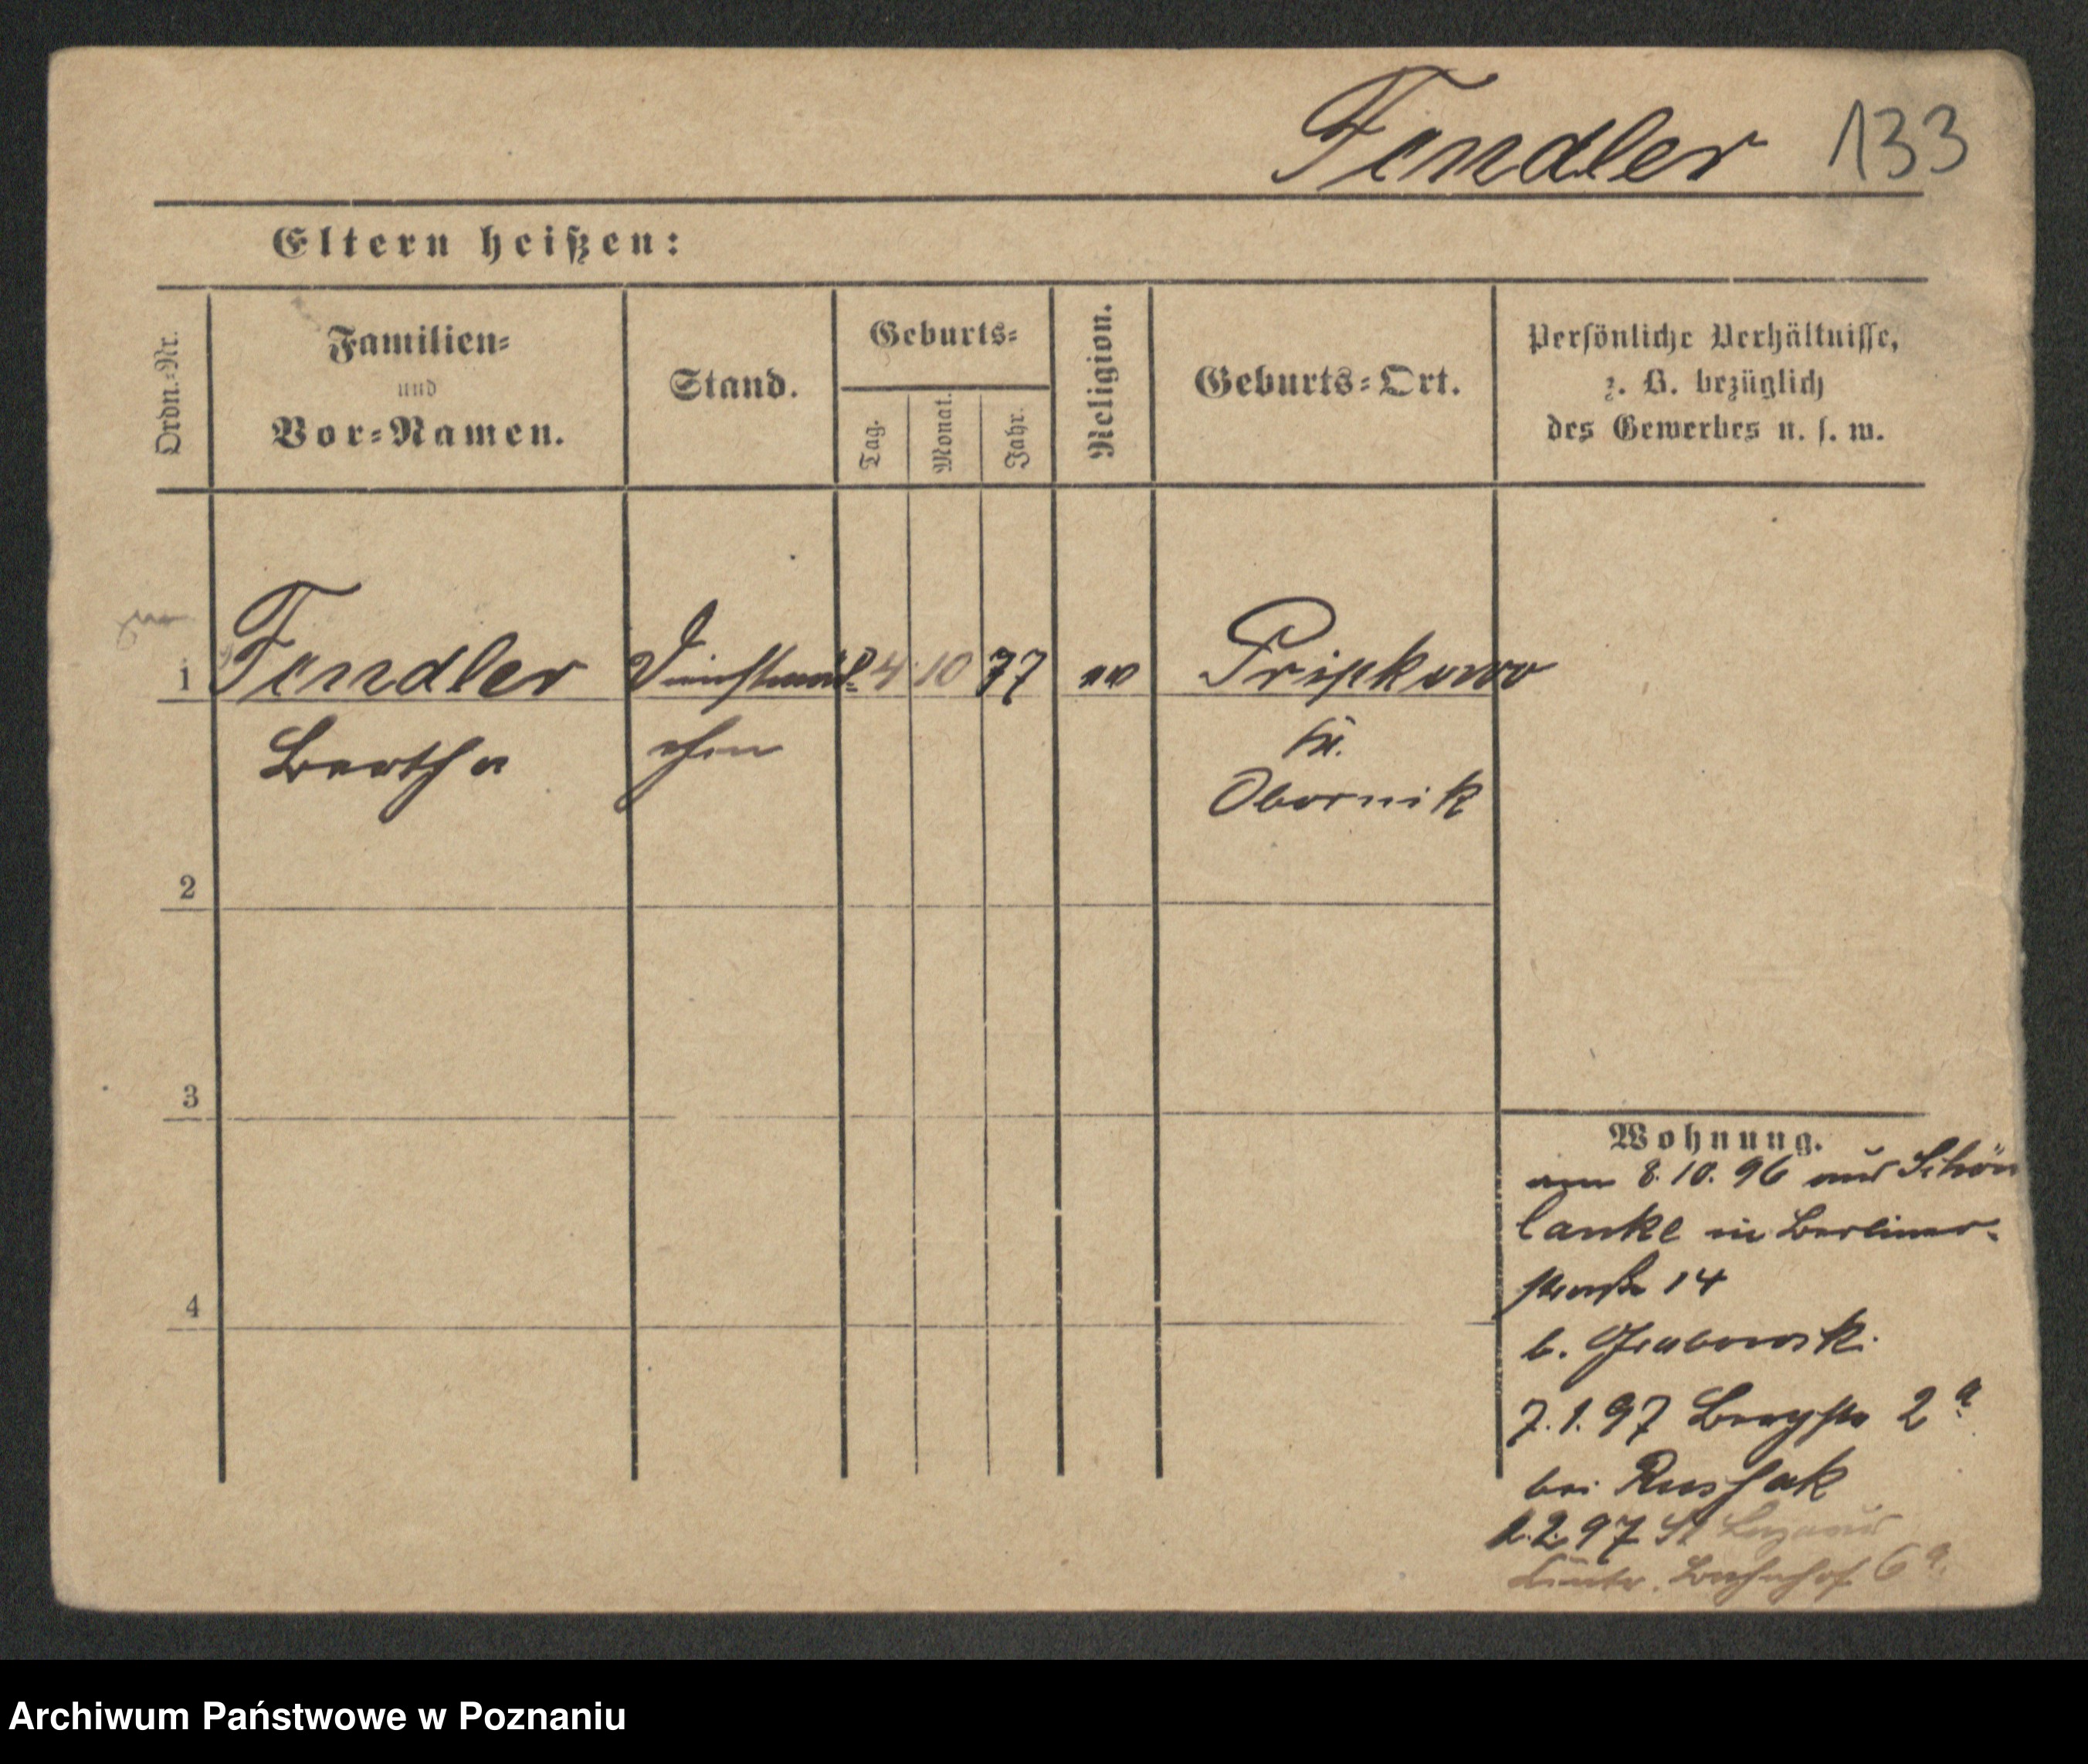 Fendler 133
Eltern heißen:
Ordn.-Nr.
Familien-
und
Vor-Namen.
Stand.
Geburts-
Tag.
Monat.
Jahr.
Religion.
Geburts-Ort.
Persönliche Verhältnisse,
z. B. bezüglich
des Gewerbes u. s. w.
1 Fendler Dienstmäd- 4 10 77 ev Pripkowo
Bertha chen Kr.
Obornik
2
3
4
Wohnung.
am 8.10.96 aus Schön
lanke in Berliner-
straße 14
b. Grabowski
7.1.97 Bergstr 2a
bei Russak
2.97 St Lazarus
Bahnhof 6a.
Archiwum Państwowe w Poznaniu